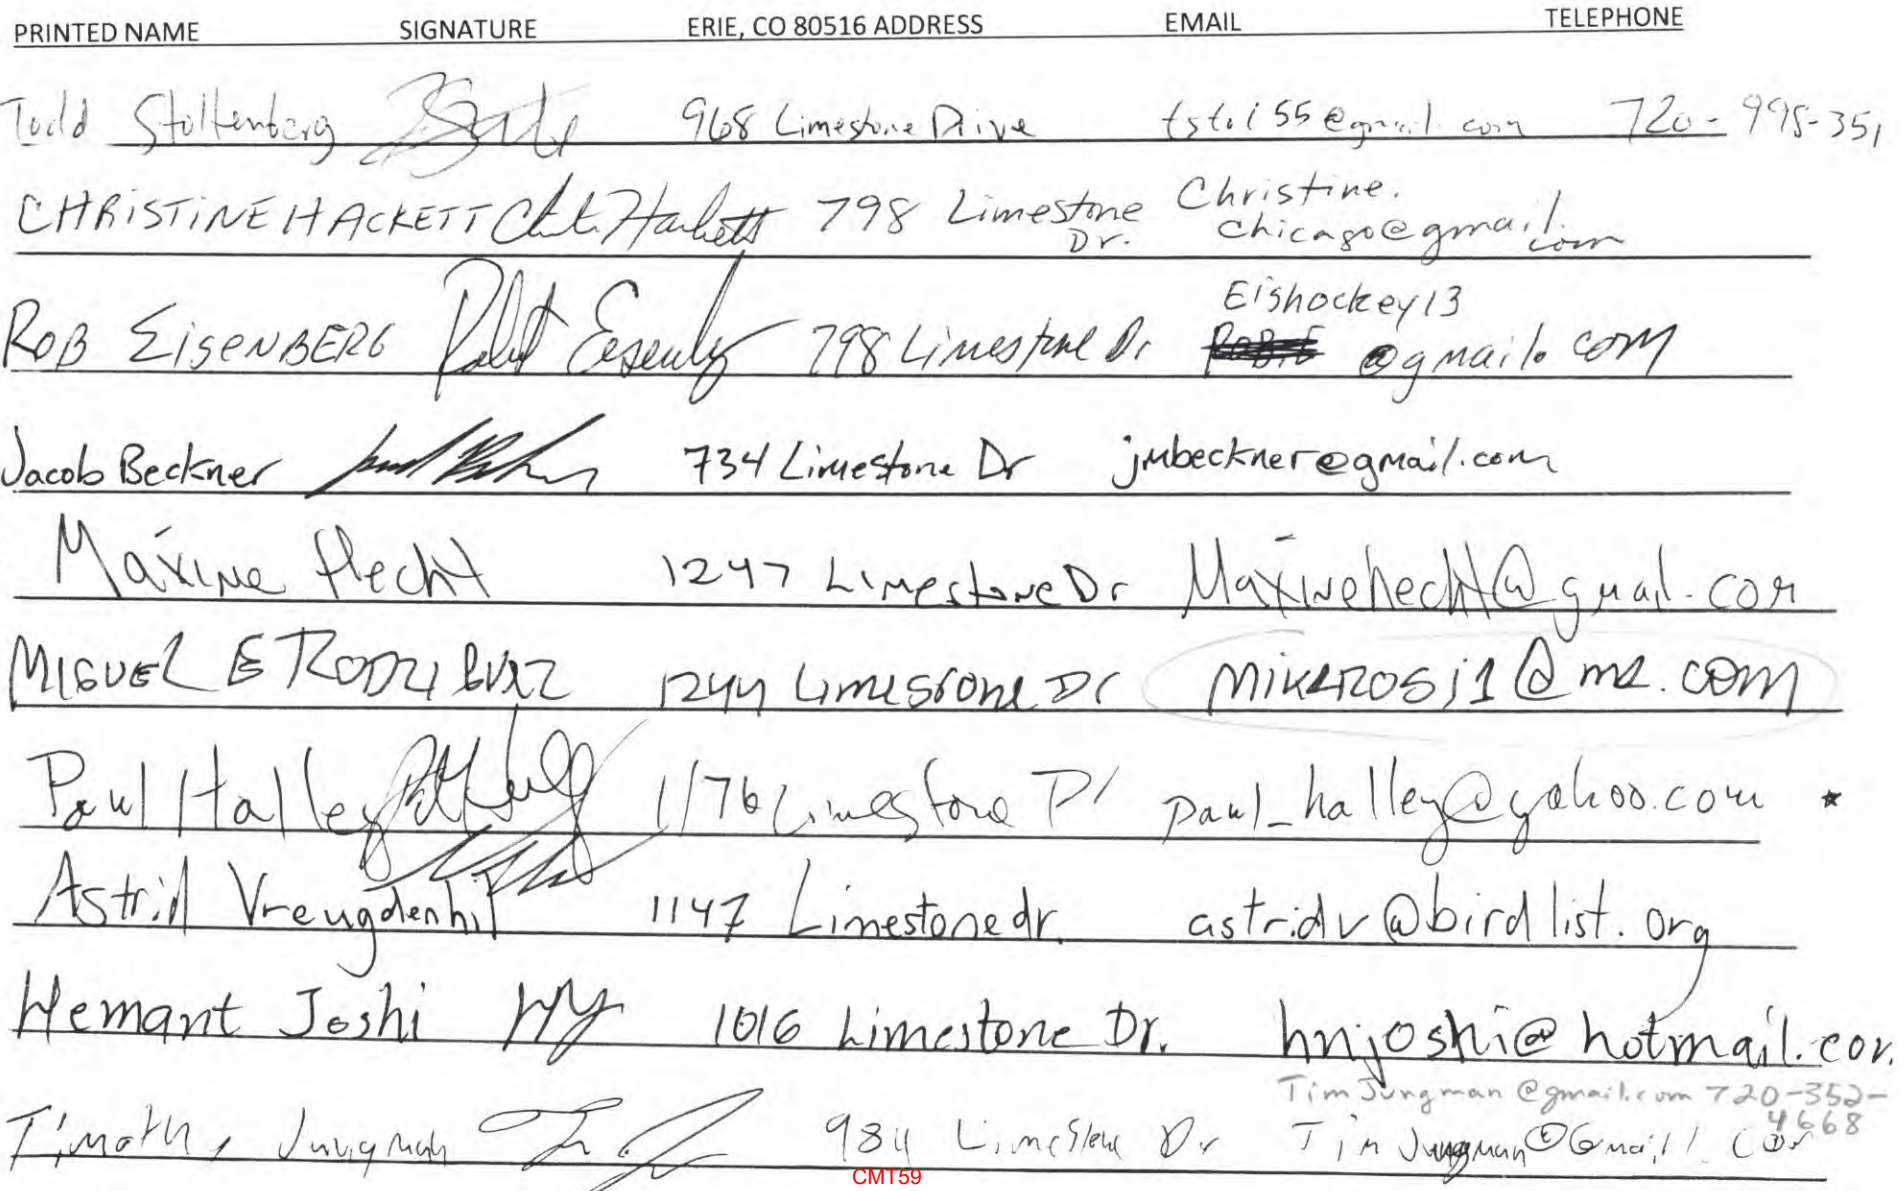 PRINTED NAME SIGNATURE ERIE, CO 80516 ADDRESS EMAIL TELEPHONE
Todd Stoltenberg 968 Limestone Drive @gmail.com 720-998-351
CHRISTINE HACKETT 798 Limestone Dr. Christine.
chicago@gmail.com
Eishockey13
ROB EISENBERG Robt Eisenberg 798 Limestone Dr @gmail.com
Jacob Beckner 734 Limestone Dr jmbeckner@gmail.com
Maxine Hecht 1247 Limestone Dr Maxinehecht@gmail.com
MIGUEL E RODRIGUEZ 1244 Limestone Dr @me.com
Paul Halley 1176 Limestone paul_halley@yahoo.com *
Astrid Vreugdenhil 1147 Limestone dr. astridv@birdlist.org
Hemant Joshi HNJ 1016 Limestone Dr. hnjoshi@hotmail.com
TimJungman@gmail.com 720-352-
4668
Timothy Jungman 984 Limestone Dr TimJungman@Gmail.com
CMT59